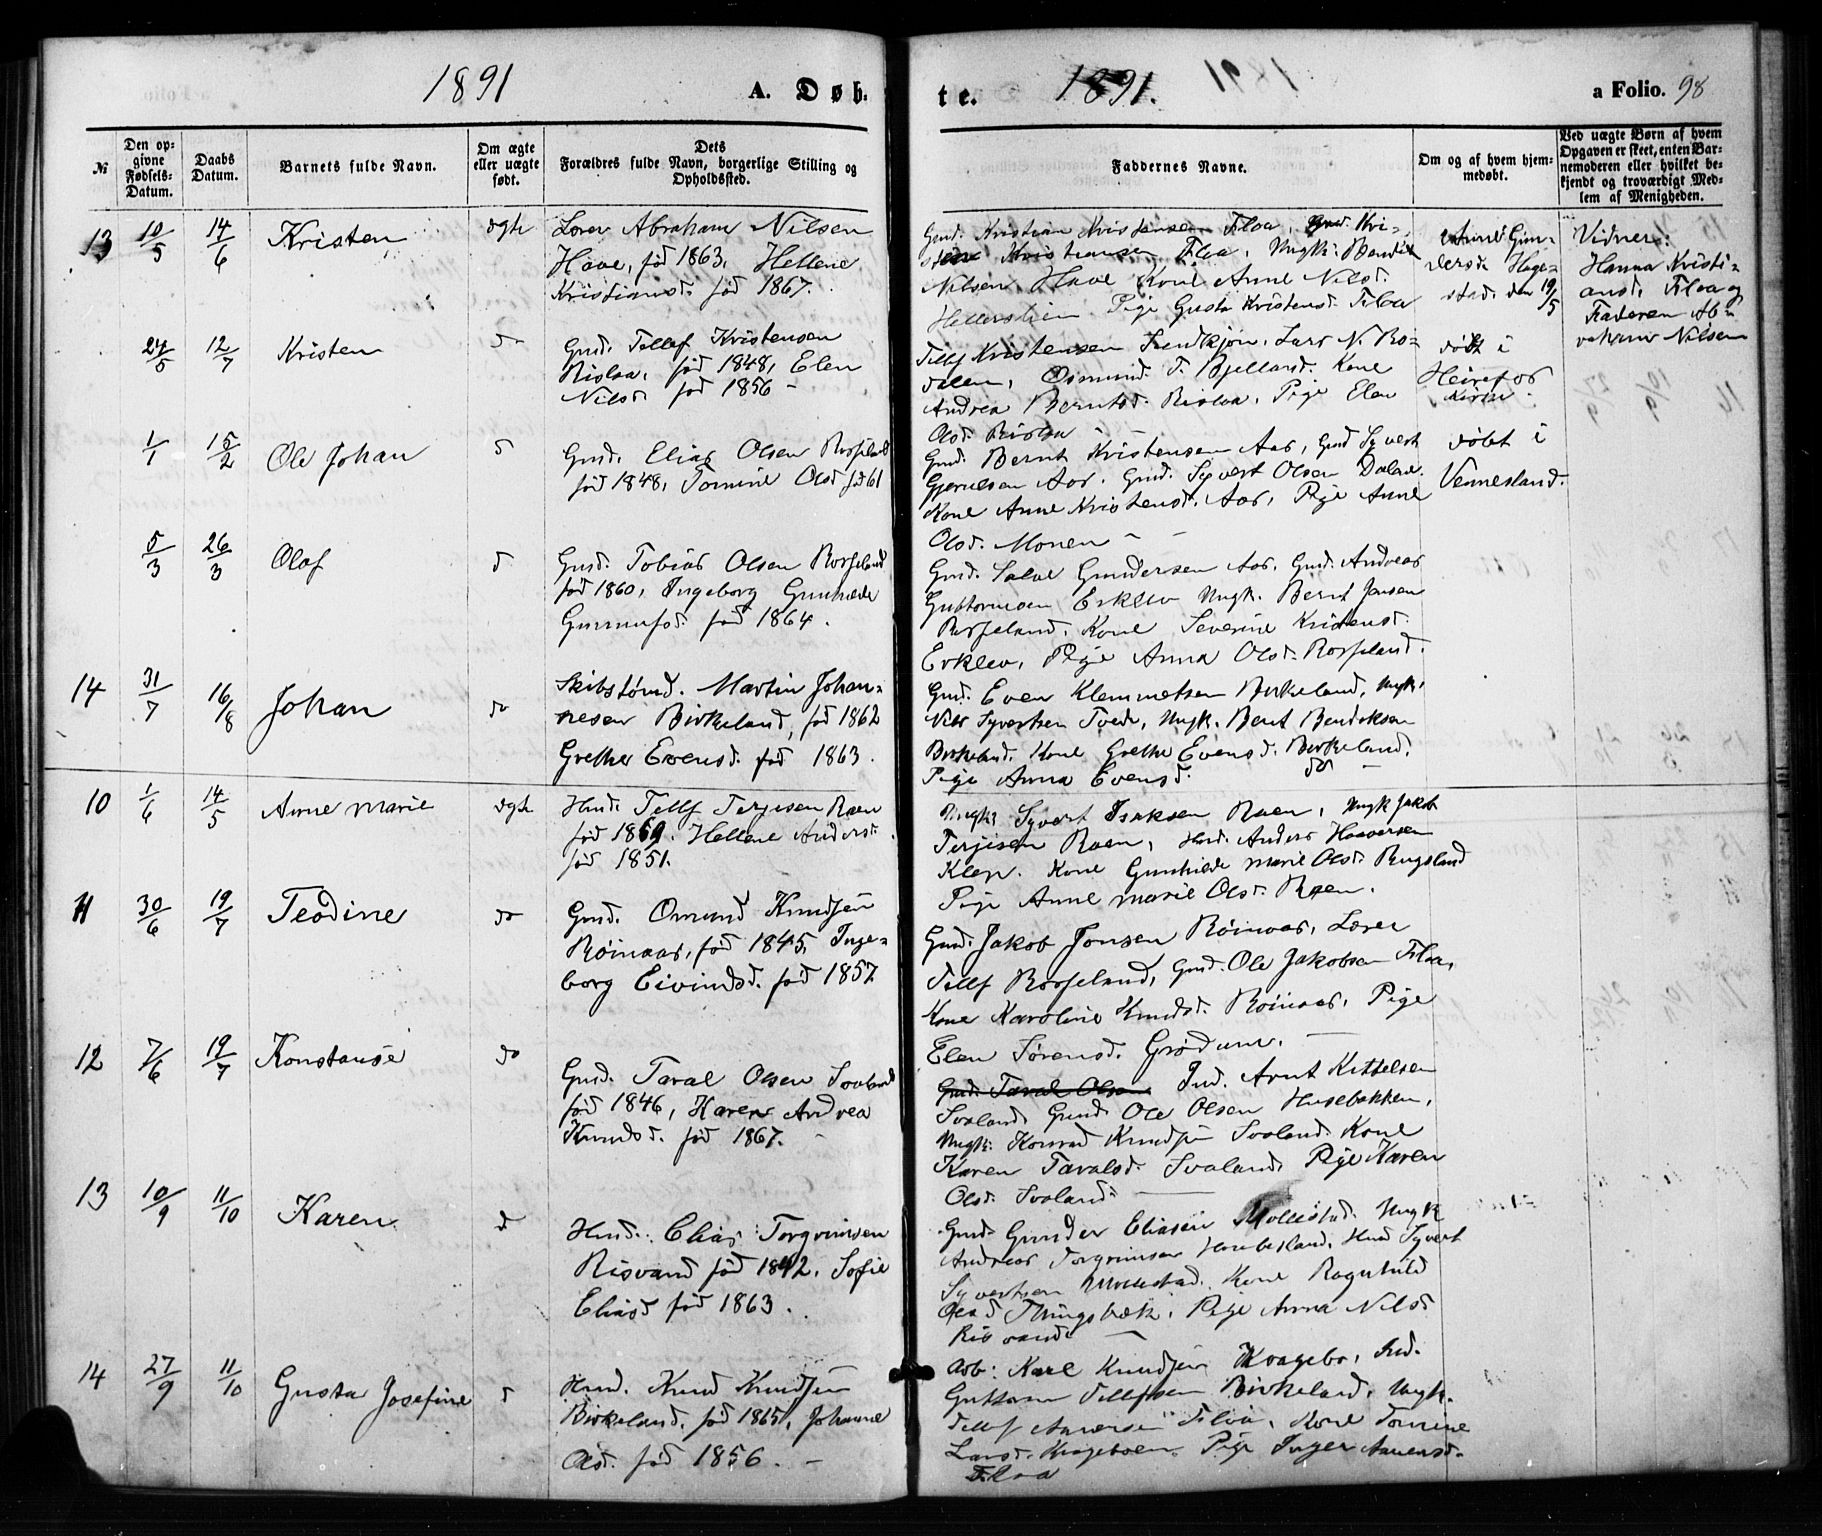 1891
A. Døb-
№
Den op-
givne
Fødsels-
Datum.
Daabs
Datum.
Barnets fulde Navn.
Om ægte
eller uægte
født.
Dets
Forældres fulde Navn, borgerlige Stilling og
Opholdssted.
13 10/5 14/6 Kristen ægte
Lærer Abraham Nilsen
Have, fød 1863, Hellene
Kristiansd. fød 1867.
24/5 12/7 Kristen do
Gmd. Tellef Kristensen
Rislaa, fød 1848, Elen
Nilsd. fød 1856 -
1/1 15/2 Ole Johan d
Gmd. Elias Olsen Rosseland
fød 1848, Tomine Olsd fød 61
5/3 26/3 Olaf d
Gmd. Tobias Olsen Rosseland
fød 1860, Ingeborg Gunhilde
fød 1864.
14 31/7 16/8 Johan do
Martin Johan-
nesen Birkeland, fød 1862
Grethe Evensd. fød 1863.
10 1/6 14/5 Anne Marie ægte
Hmd. Tellf Terjesen Raen
Hellene Andersd.
fød 1851.
11 30/6 19/7 Teodine do
Gmd. Omund Knudsen
Røinaas, fød 1845, Inge-
borg Eivindsd. fød 1857
12 7/6 19/7 Konstanse do
Gmd. Taral Olsen Svaland
fød 1846, Karen Andrea
Knudsd. fød 1867. -
13 10/9 11/10 Karen d
Hmd. Elias Torgrimsen
Risvand fød 1842, Sofie
Eliasd fød 1863.
14 27/9 11/10 Gusta Josefine d
Hmd. Knud Knudsen
Birkeland, fød 1865, Johanne
Olsd. fød 1856. -
te.
1891.
a Folio. 98
Faddernes Navne.
Om og af hvem hjem-
medøbt.
Ved uægte Børn af hvem
Opgaven er skeet, enten Bar-
nemoderen eller hvilket be-
kjendt og troværdigt Med-
lem af Menigheden.
Gmd. Kristian Kristensen Flaa, Gmd. Kri-
Kristiansen Flaa, Ungk: Bendik
Nilsen Have Kone Anne Nilsd.
Pige Gusta Kristensd. Flaa
Anne Gun-
dersd. Hage-
stad. den 19/5
Vidner:
Hanna Kristi-
ansd. Flaa og
Faderen Ab-
raham Nilsen
Tellf Kristensen Lars N. Ro-
dalen, Osmund T. Bjelland. Kone
Andrea Berntsd. Rislaa, Pige Elen
Olsd. Rislaa
døbt i
Heirefos
Kirke.
Gmd. Bernt Kristensen Aas, Gmd Syvert
Aas. Gmd. Syvert Olsen
Kone Anne Kristensd. Aas, Pige Anne
Olsd. Monen -
døbt i
Vennesland.
Gmd. Salve Gundersen Aas. Gmd. Andreas
Guttormsen Ungk. Bernt Jansen
Rosseland, Kone Severine Kristensd.
Pige Anna Olsd. Rosseland.
Gmd. Even Klemmetsen Birkeland, Ungk.
Nils Syvertsen Tvede, Ungk. Bent Bendiksen
Birkeland. Kone Grethe Evensd. Birkeland.
Pige Anna Evensd. do -
Ungk: Syvert Isaksen Raen, Ungk Jakob
Terjesen Raen, Hmd. Anders Haaversen
Klep. Kone Gunhilde Marie Olsd. Rugsland
Pige Anne Marie Olsd. Raen.
Gmd. Jakob Jonsen Røinaas, Lærer
Tellf Rosseland, Gmd. Ole Jakobsen Flaa,
Kone Karoline Knudsd. Røinaas, Pige
Elen Sørensd. Grødum.
Gmd. Taral Olsen Ind. Arnt Kittelsen
Svaland, Gmd Ole Olsen Husebakken,
Ungk: Konrad Knudsen Svaland. Kone
Karen Taralsd. Svaland, Pige Karen
Olsd. Svaland
Gmd. Gunder Eliasen Mollestad. Ungk
Andreas Torgrimsen Hmd Syvert
Syvertsen Mollestad. Kone Ragnhild
Olsd Pige Anna Nilsd
Risvand
Arb: Karl Knudsen Kragebo, Ind.
Guttorm Tellefsen Birkeland, Ungk.
Tellf Flaa, Kone Tomine
Larsd. Krageboen. Pige Inger
Flaa